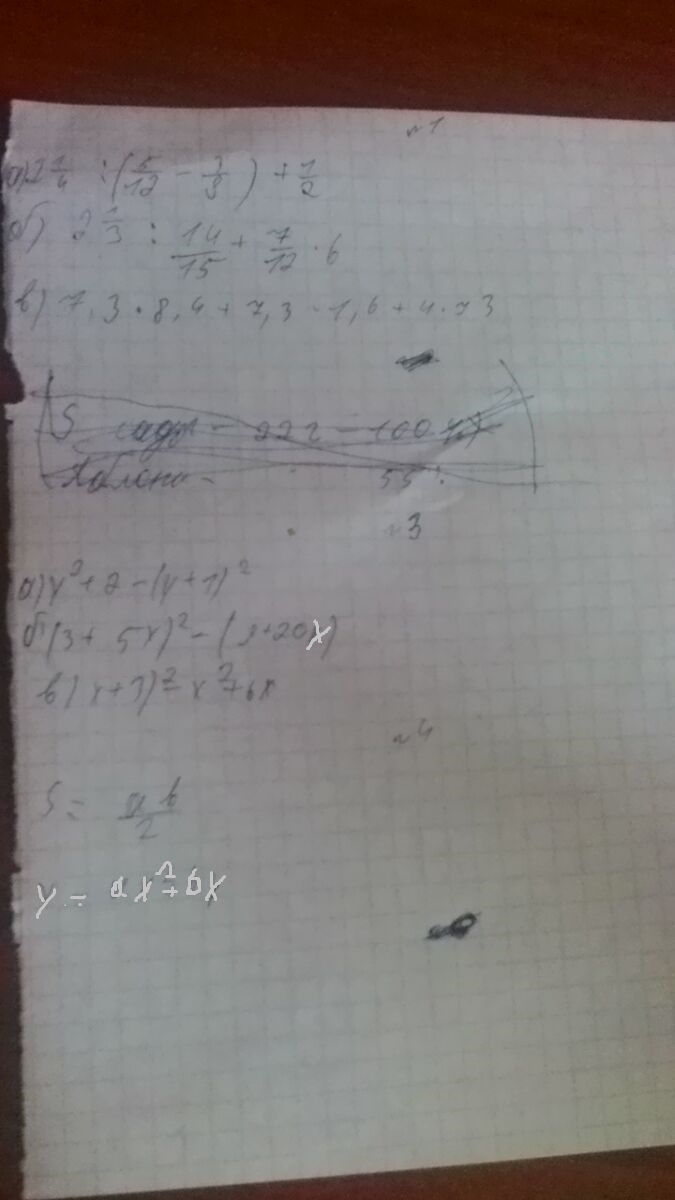 №1
а) 2 1/4 : (5/12 - 3/8) + 1/2
б) 2 1/3 : 14/15 + 7/12 · 6
в) 7,3 · 8,4 + 7,3 · 1,6 + 4 · 73
S сада - 22 г - 100%
Яблони - 55%
№3
а) y² + 2 - (y + 1)²
б) (3 + 5x)² - (9 + 20x)
в) (x + 3)² - x² + 6x
№4
S = ab/2
y = ax² + bx